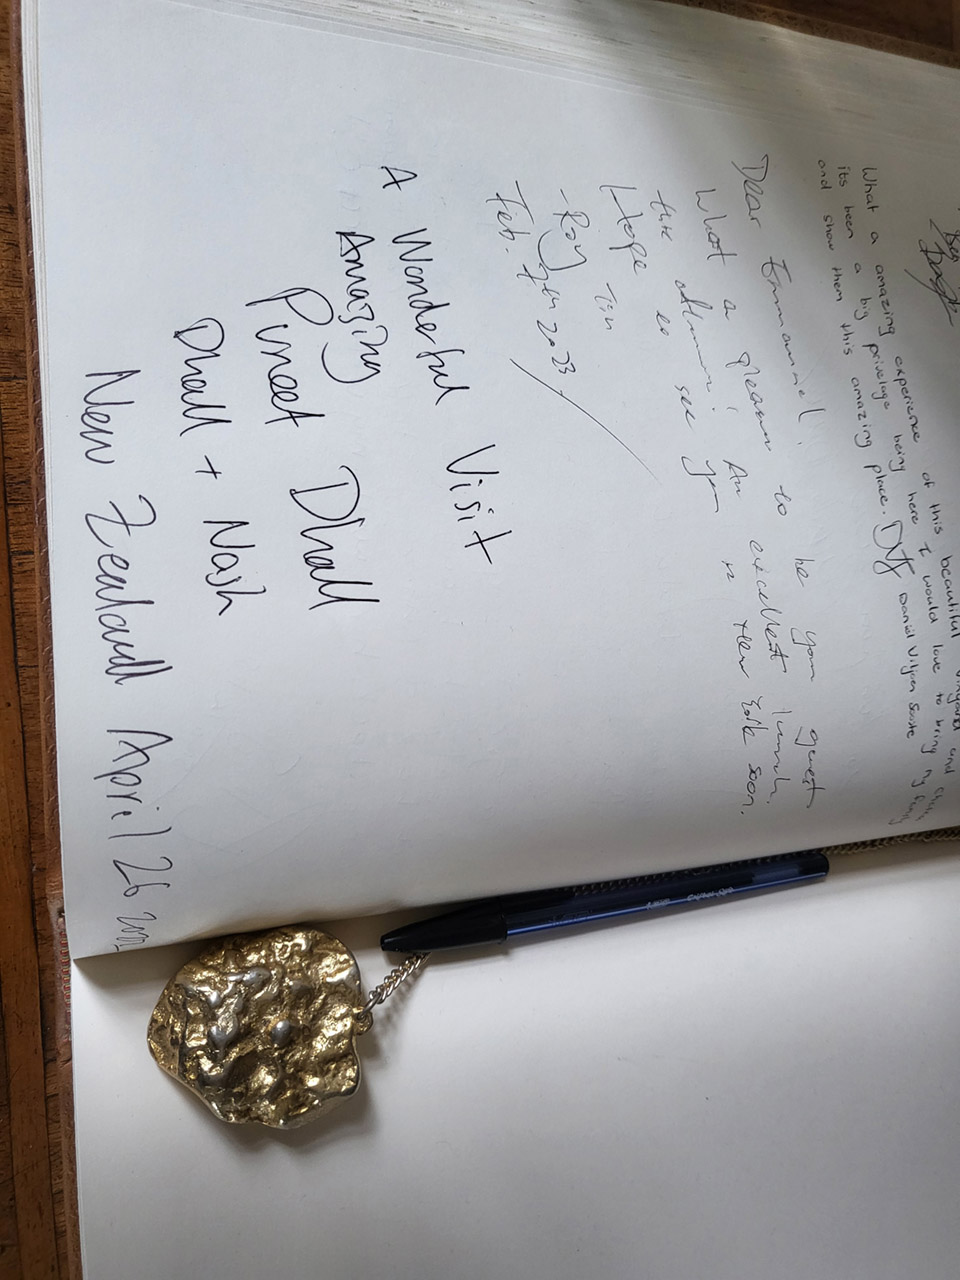 What a amazing experience of this beautiful vinyard and
its been a big privelage being here I would love to bring my family
and show them this amazing place. Daniel Viljoen
Dear Emmanuel,
What a pleasure to be your guest
this afternoon! An excellent lunch.
Hope to see you in New York soon.
- Roy
Feb. 7th 2023
A Wonderful Visit
Amazing
Puneet Dhall
Dhall + Nash
New Zealand April 26